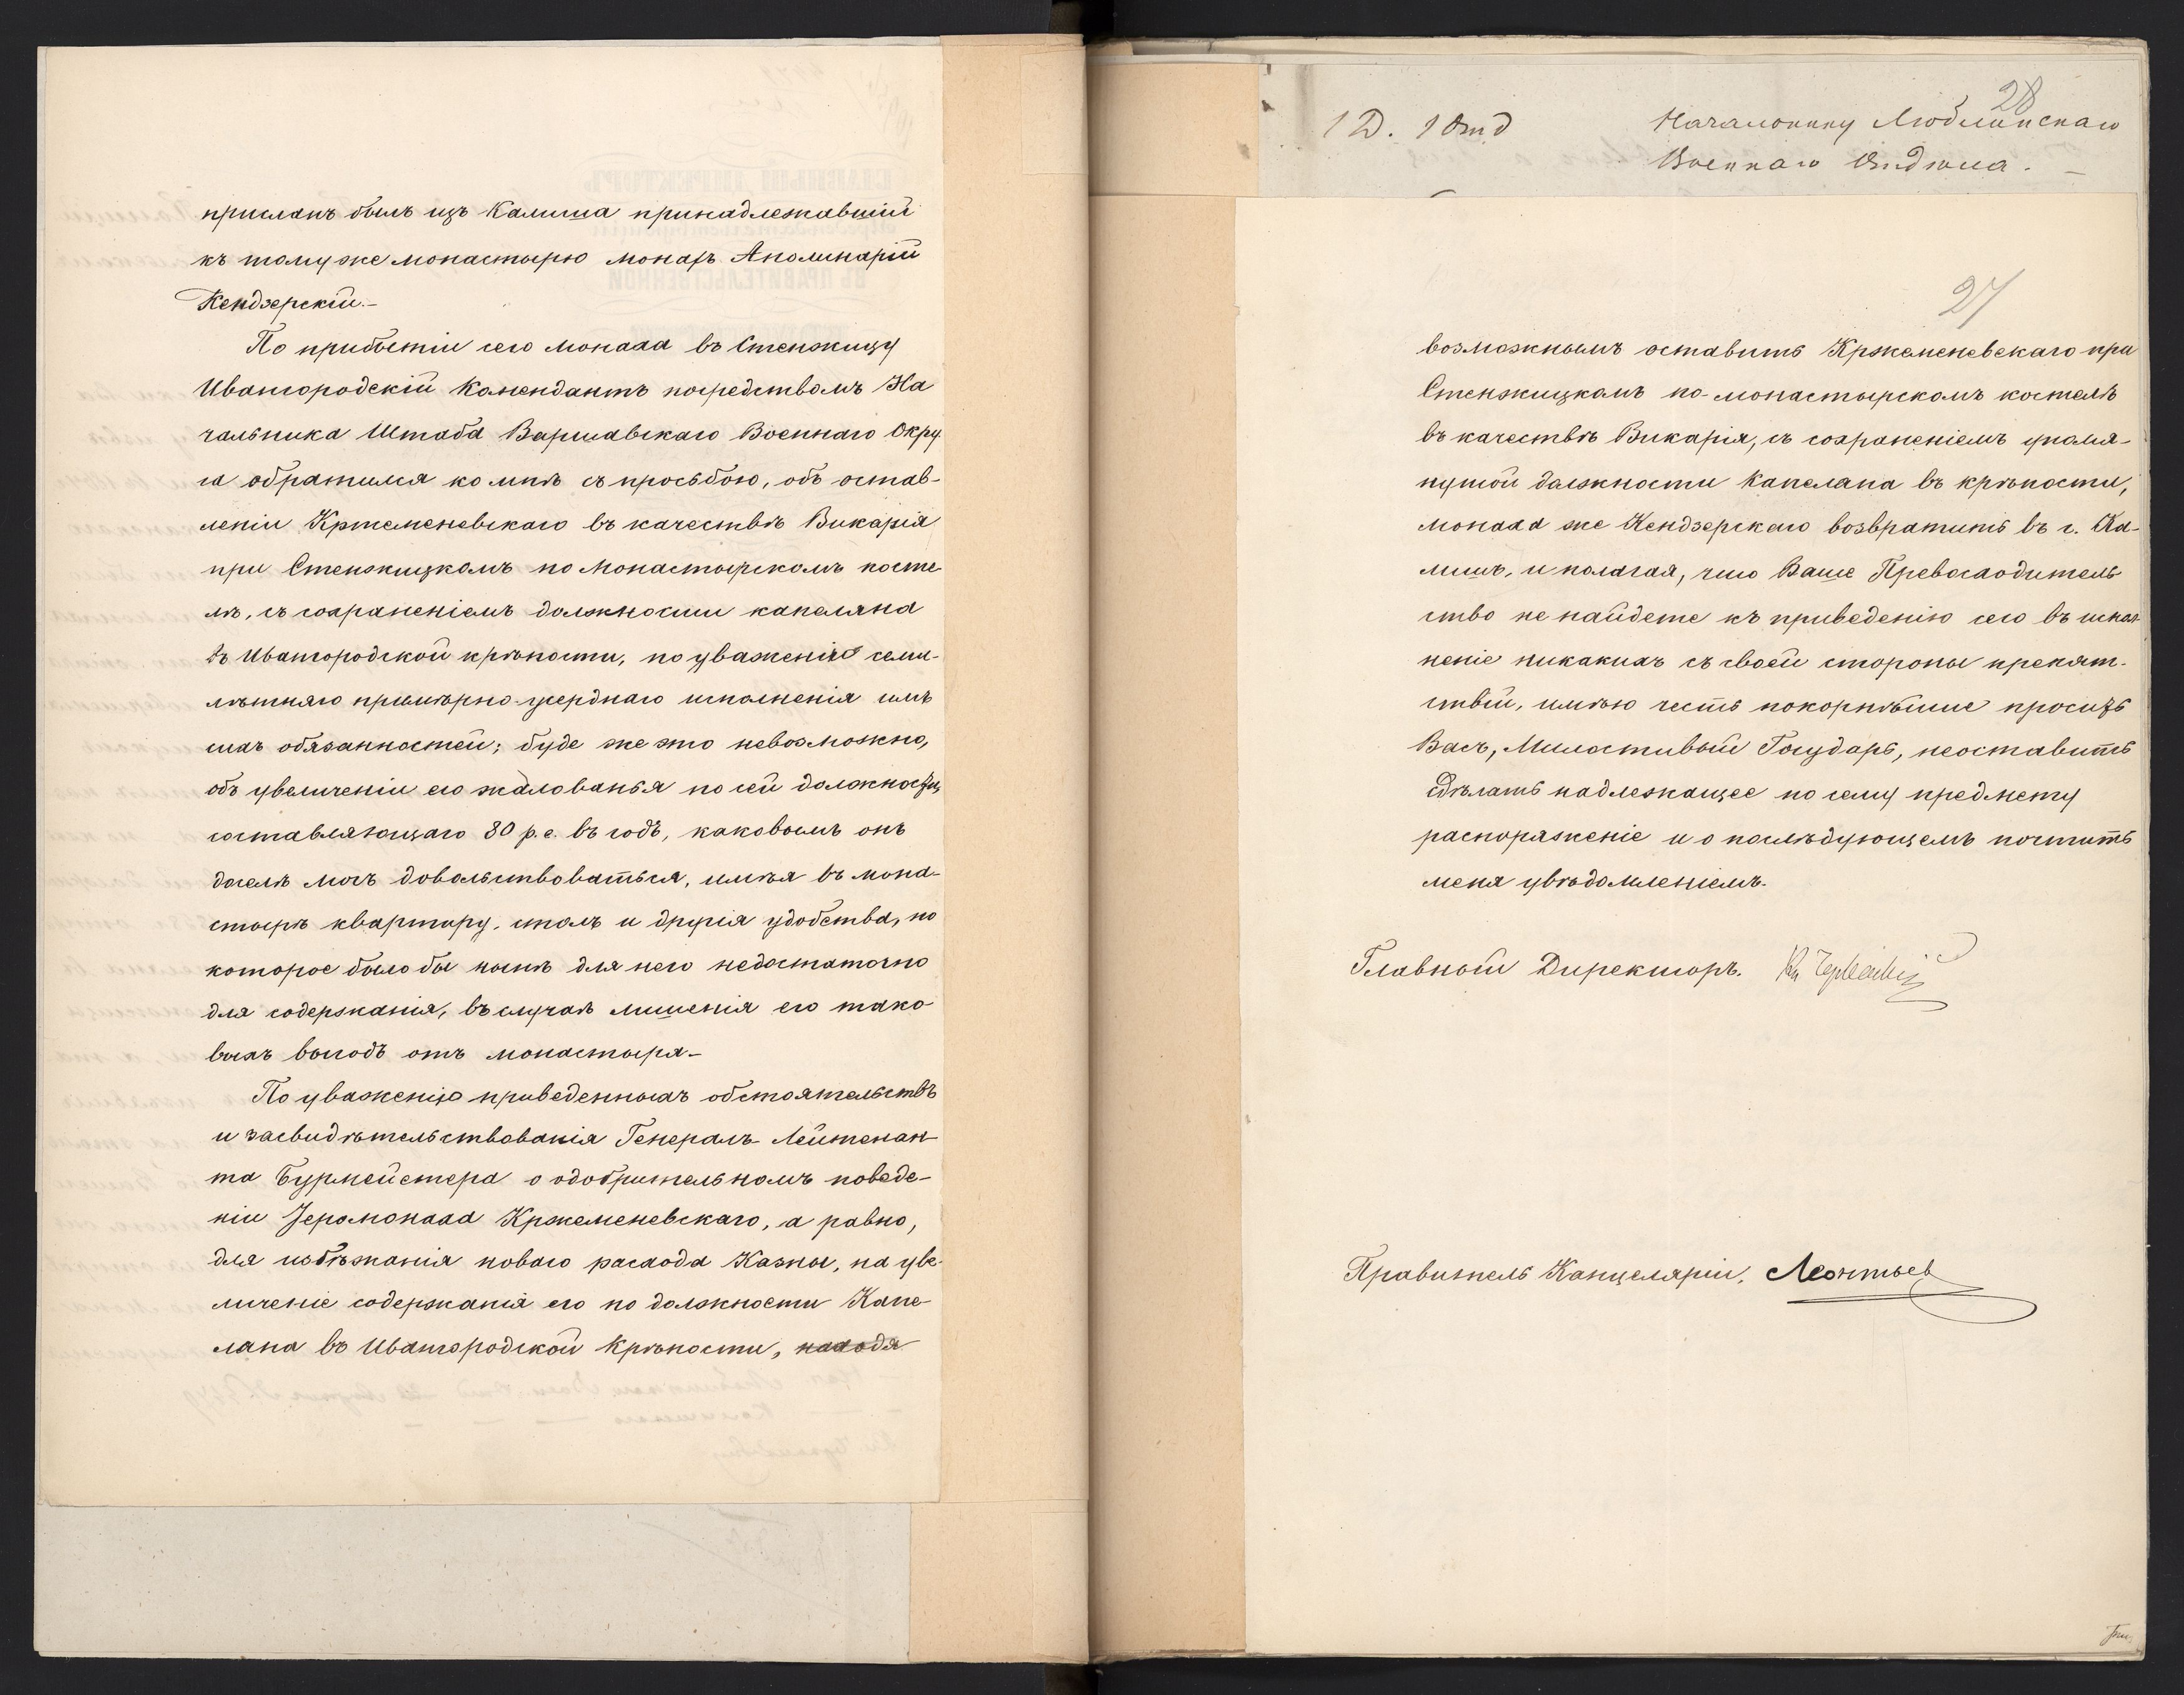 присланъ былъ изъ Калиша принадлежавшій
къ тому же монастырю монахъ Аполинарій
Кендзерскій.-
По прибытіи сего монаха въ Стенжицу
Ивангородскій Комендантъ посредствомъ На
чальника Штаба Варшавскаго Военнаго Окру
га обратился ко мнѣ съ просьбою, объ остав-
леніи Кржеменевскаго въ качествѣ Викарія
при Стенжицкомъ по монастырскомъ косте
лѣ, съ сохраненіемъ должности капеляна
въ Ивангородской крѣпости, по уваженію семи-
лѣтняго примѣрно-усерднаго исполненія имъ
сихъ обязанностей; буде же это невозможно,
объ увеличеніи его жалованья по сей должности,
составляющаго 80 р. с. въ годъ, каковымъ онъ
доселѣ могъ довольствоваться, имѣя въ мона-
стырѣ квартиру, столъ и другія удобства, но
которое было бы нынѣ для него недостаточно
для содержанія, въ случаѣ лишенія его тако
выхъ выгодъ отъ монастыря-
По уваженію приведенныхъ обстоятельствъ
и засвидѣтельствованія Генералъ-Лейтенан
та Бурмейстера о одобрительномъ поведе-
ніи Іеромонаха Кржеменевскаго, а равно,
для избѣжанія новаго расхода Казны, на уве-
личеніе содержанія его по должности Капе
лана въ Ивангородской Крѣпости, находя
28
1 Д. 1 Отд
Начальнику Люблинскаго
Военнаго Отдѣла. -
27
возможнымъ оставить Кржеменевскаго при
Стенжицкомъ по-монастырскомъ костелѣ
въ качествѣ Викарія, съ сохраненіемъ упомя-
нутой должности Капелана въ крѣпости,
монаха же Кендзерскаго возвратить въ г. Ка-
лишъ, и полагая, что Ваше Превосходитель
ство не найдете къ приведенію сего въ испол-
неніе никакихъ съ своей стороны препят-
ствій, имѣю честь покорнѣйше просить
Васъ, Милостивый Государь, неоставить
сдѣлать надлежащее по сему предмету
распоряженіе и о послѣдующемъ почтить
меня увѣдомленіемъ.
Главный Директоръ.
Правитель Канцеляріи, Леонтьев